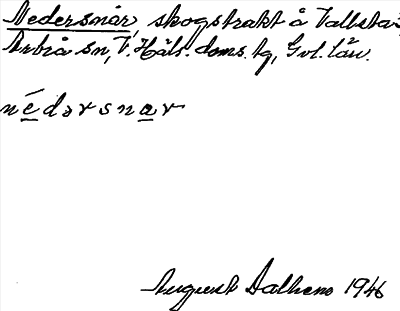 Nedersnår, skogstrakt å Vallsta,
Arbrå sn, V. Häls. doms. tg, Gvl. län.
nédərsnar
August Dalhem 1946